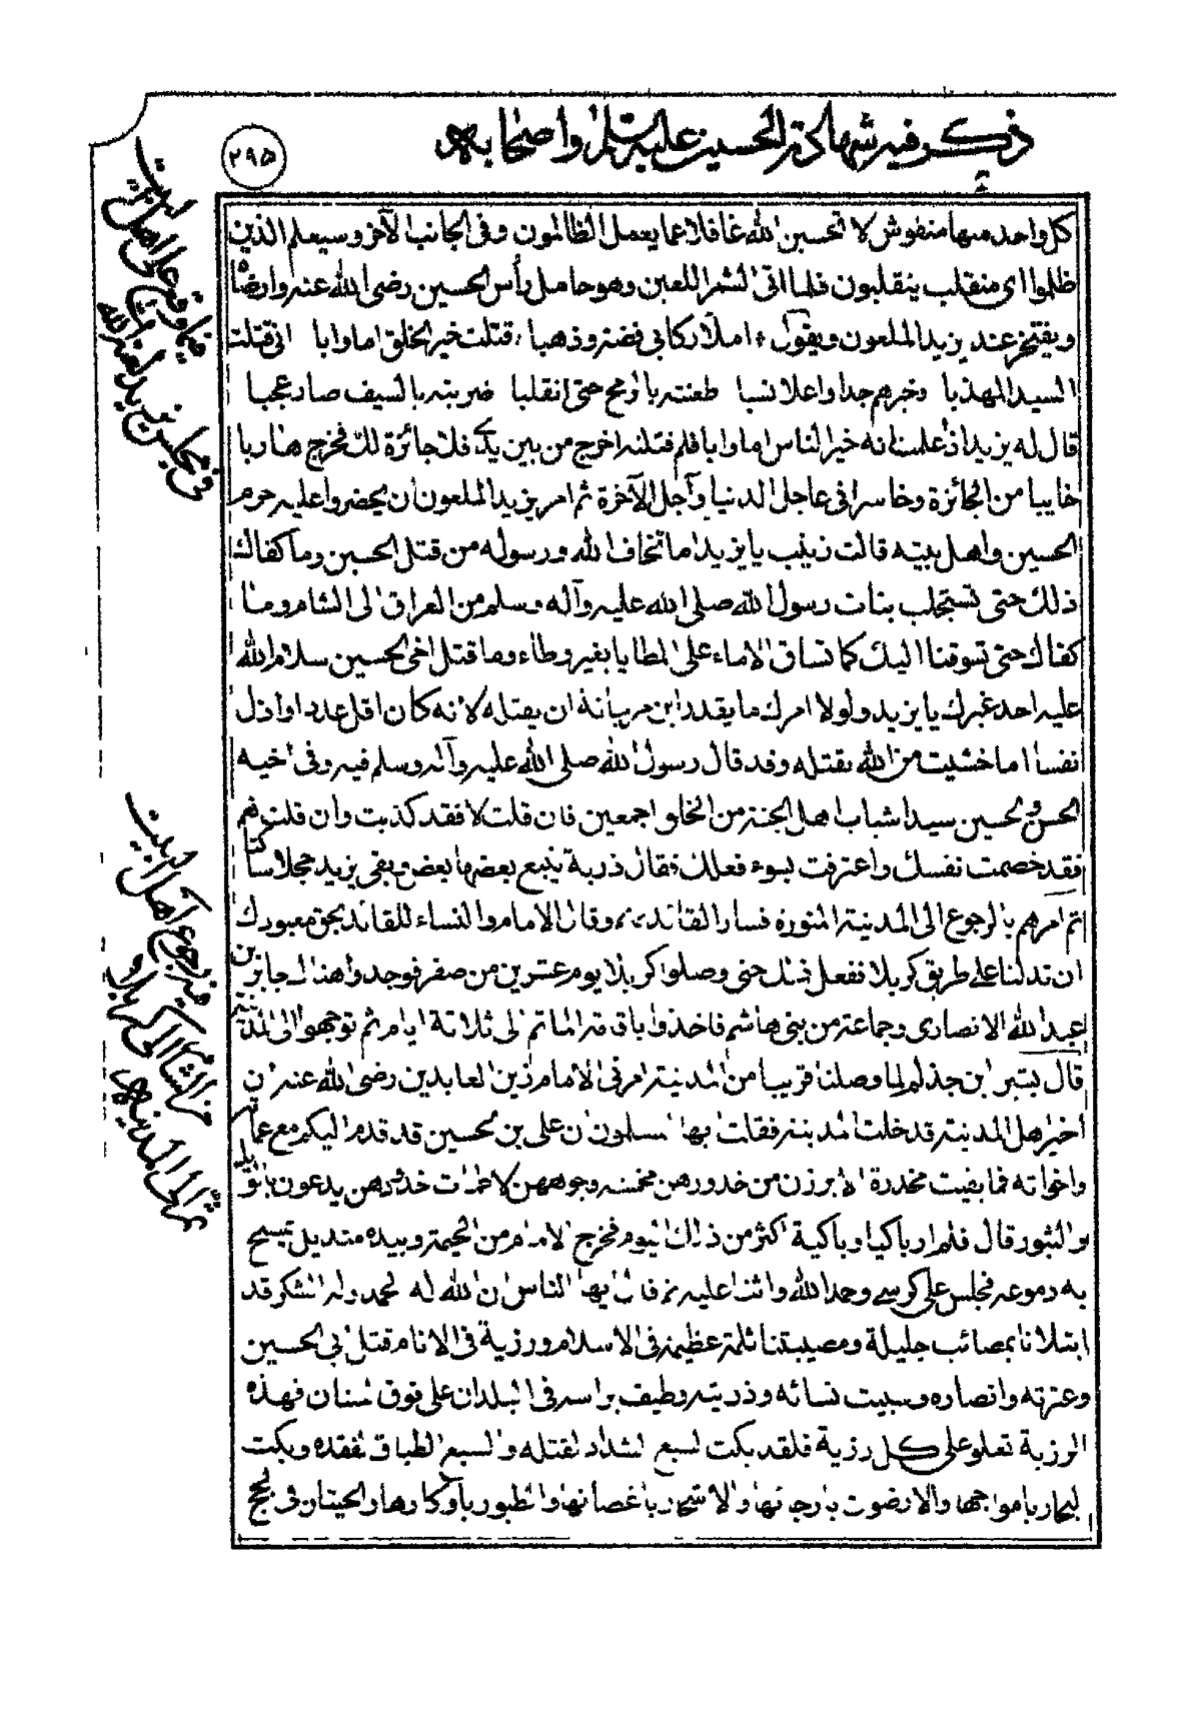 ذكر فيه شهادة الحسين عليه السلام واصحابه
٢٩٥
كل واحد منها منقوش لا تحسبن الله غافلا عما يعمل الظالمون وفى الجانب الآخر وسيعلم الذين
ظلموا اى منقلب ينقلبون فلما اتى الشمر اللعين وهو حامل رأس الحسين رضى الله عنه وارضا
ويفتخر عند يزيد الملعون ويقول املأ ركابى فضة وذهبا قتلت خير الخلق اما وابا انى قتلت
السيد المهذبا وخيرهم جدا واعلا نسبا طعنته بالرمح حتى انقلبا ضربته بالسيف صار عجبا
قال له يزيد اذ علمت انه خير الناس اما وابا فلم قتلته اخرج من بين يدى فلا جائزة لك فخرج هاربا
خايبا من الجائزة وخاسرا فى عاجل الدنيا وآجل الآخرة ثم امر يزيد الملعون ان يحضروا عليه حرم
الحسين واهل بيته قالت زينب يا يزيد اما تخاف الله ورسوله من قتل الحسين وما كفاك
ذلك حتى تستجلب بنات رسول الله صلى الله عليه وآله وسلم من العراق الى الشام وما
كفاك حتى تسوقنا اليك كما تساق الاماء على المطايا بغير وطاء وما قتل اخى الحسين سلام الله
عليه احد غيرك يا يزيد ولولا امرك ما يقدر ابن مرجانة ان يقتله لانه كان اقل عددا واذل
نفسا اما خشيت من الله بقتله وقد قال رسول الله صلى الله عليه وآله وسلم فيه وفى اخيه
الحسن والحسين سيدا شباب اهل الجنة من الخلق اجمعين فان قلت لا فقد كذبت وان قلت نعم
فقد خصمت نفسك واعترفت بسوء فعلك فقال ذرية يتبع بعضها بعض وبقى يزيد خجلا ساكتا
ثم امرهم بالرجوع الى المدينة المنورة فسار القائد وقال الامام والنساء للقائد بحق معبودك
ان تدلنا على طريق كربلا ففعل ذلك حتى وصلوا كربلا يوم عشرين من صفر فوجدوا هناك جابر بن
عبد الله الانصارى وجماعة من بنى هاشم فاخذوا باقامة الماتم الى ثلاثة ايام ثم توجهوا الى المدينة
قال بشير ابن جذلم لما وصلنا قريبا من المدينة امرنى الامام زين العابدين رضى الله عنه ان
اخبر اهل المدينة قد خلت المدينة فقلت ايها المسلمون ان على بن الحسين قد قدم اليكم مع عماته
واخواته فما بقيت مخدرة الا برزن من خدورهن مخمشة وجوههن لاطمات خدودهن يدعون بالويل
والثبور قال فلم ار باكيا وباكية اكثر من ذلك اليوم فخرج الامام من الخيمة وبيده منديل يمسح
به دموعه فجلس على كرسى وحمد الله واثنا عليه ثم قال ايها الناس ان الله له الحمد وله الشكر قد
ابتلانا بمصائب جليلة ومصيبتنا ثلمة عظيمة فى الاسلام ورزية فى الانام قتل ابى الحسين
وعترته وانصاره وسبيت نسائه وذريته وطيف براسه فى البلدان على فوق السنان فهذه
الرزية تعلو على كل رزية فلقد بكت السبع الشداد لقتله والسبع الطباق لفقده وبكت
البحار بامواجها والارضوت بارجائها والاشجار باغصانها والطيور باوكارها والحيتان فى لجج
فيما وقع على اهل البيت
فى مجلس يزيد لعنه الله
فى رجوع اهل البيت
من الشام الى كربلا
ثم الى المدينة